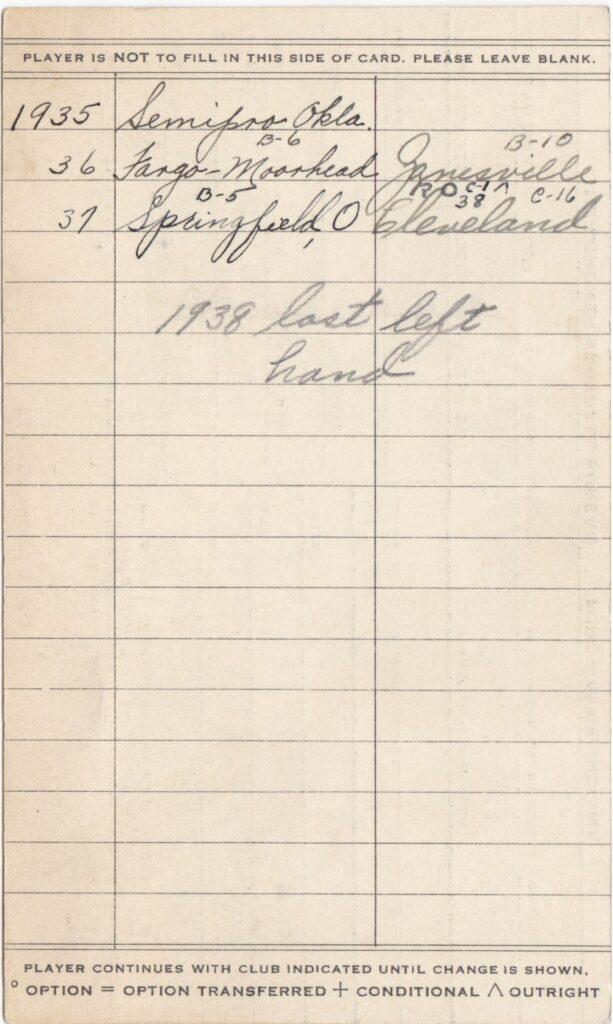 PLAYER IS NOT TO FILL IN THIS SIDE OF CARD. PLEASE LEAVE BLANK.
1935 Semipro Okla.
B-6 B-10
36 Fargo-Moorhead Janesville
B-5 RO C-1 ^ 38 C-16
37 Springfield, O Cleveland
1938 lost left
hand
PLAYER CONTINUES WITH CLUB INDICATED UNTIL CHANGE IS SHOWN,
° OPTION = OPTION TRANSFERRED + CONDITIONAL ^ OUTRIGHT